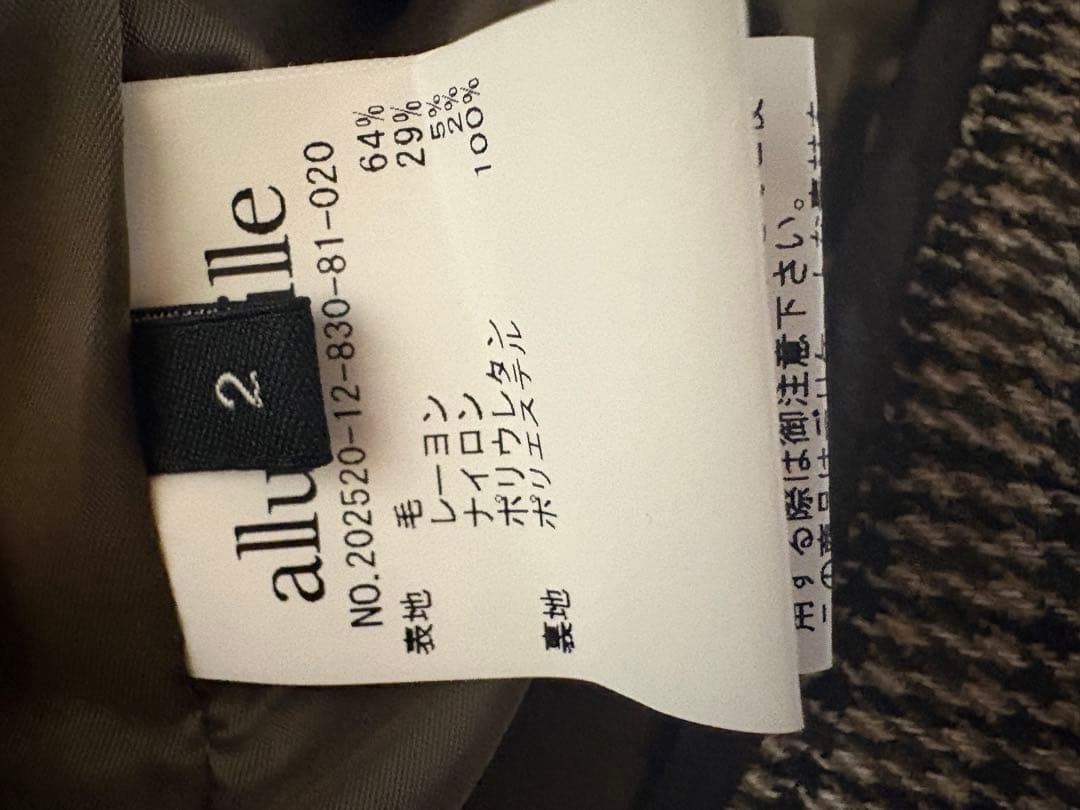 allu ille
2
NO.202520-12-830-81-020
表地 毛 64%
レーヨン 29%
ナイロン 5%
ポリウレタン 2%
裏地 ポリエステル 100%
用する際は御注意下さい。